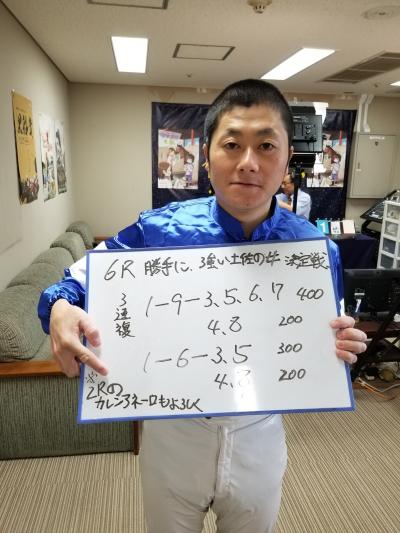 6R 勝手に、3強い土佐の 決定戦
3連複
1-9-3、5、6、7 400
4、8 200
1-6-3、5 300
4、8 200
2Rの
カレンアネーロもよろしく